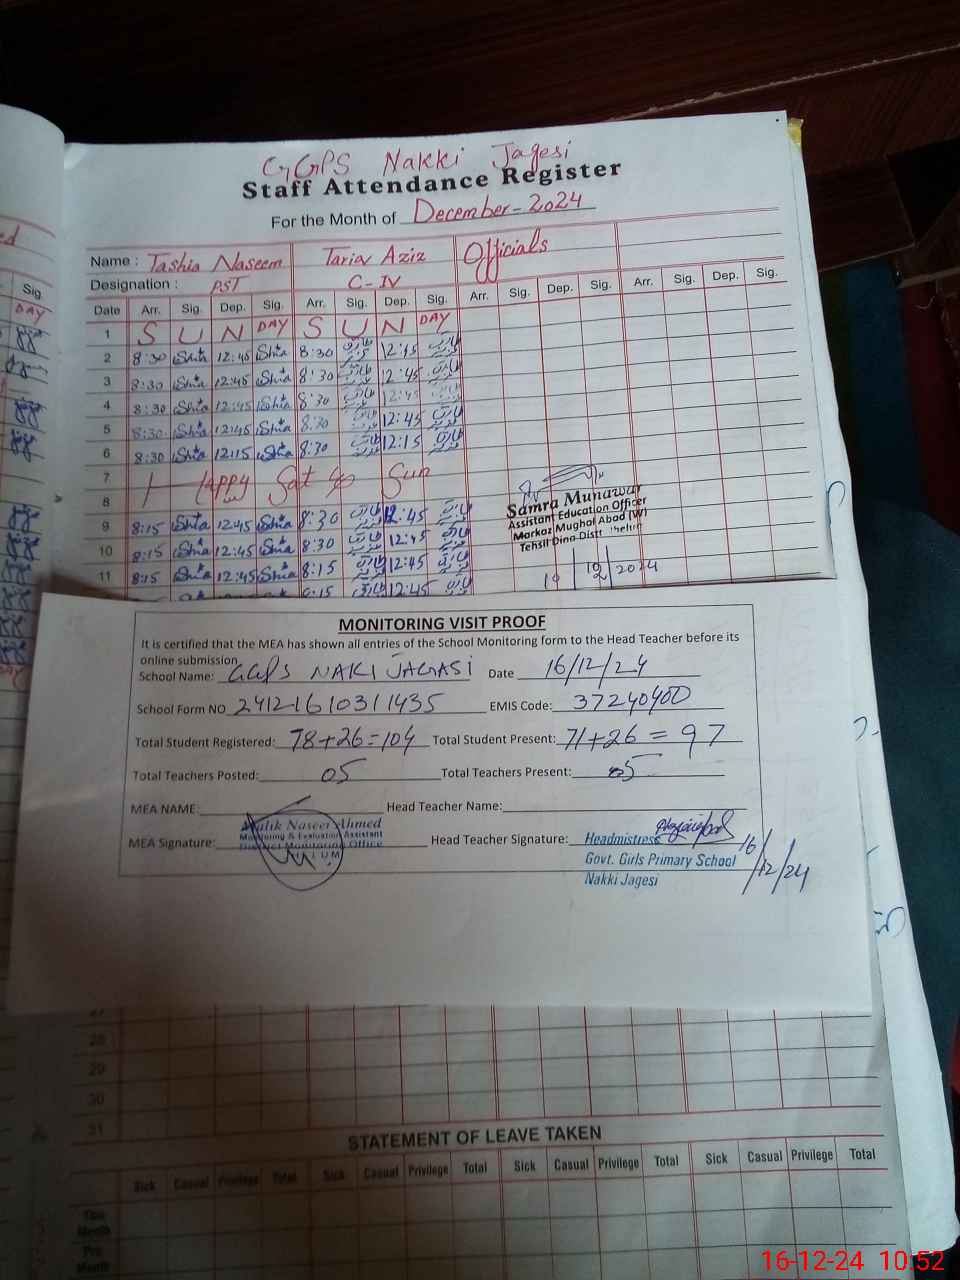 GGPS Nakki Jagesi
Staff Attendance Register
For the Month of December-2024
Name : Tashia Naseem Tariq Aziz Officials
Designation : PST C-IV
Date Arr. Sig. Dep. Sig. Arr. Sig. Dep. Sig. Arr. Sig. Dep. Sig. Arr. Sig. Dep. Sig.
1 S U N DAY S U N DAY
2 8:30 12:45 8:30 12:15
3 8:30 12:45 8:30 12:45
4 8:30 12:45 8:30 12:45
5 8:30 12:45 8:30 12:45
6 8:30 12:15 8:30 12:15
7 Happy Sat So Sun
8
9 8:15 12:45 8:30 12:45
10 8:15 12:45 8:30 12:45
11 8:15 12:45 8:15 12:45
12:45
Samra Munawar
Assistant Education Officer
Markaz Mughal Abad (W)
Tehsil Dina Distt Jhelum
19/12/2024
MONITORING VISIT PROOF
It is certified that the MEA has shown all entries of the School Monitoring form to the Head Teacher before its
online submission
School Name: GGPS NAKI JAGASI Date 16/12/24
School Form NO 24121610311435 EMIS Code: 37240400
Total Student Registered: 78+26=104 Total Student Present: 71+26 = 97
Total Teachers Posted: 05 Total Teachers Present: 05
MEA NAME: Head Teacher Name:
MEA Signature: Head Teacher Signature:
Malik Naseer Ahmed
Monitoring & Evaluation Assistant
District Monitoring Office
Headmistress
Govt. Girls Primary School
Nakki Jagesi
16/12/24
28
29
30
31
STATEMENT OF LEAVE TAKEN
Sick Casual Privilege Total Sick Casual Privilege Total Sick Casual Privilege Total Sick Casual Privilege Total
This
Month
Pre
Month
16-12-24 10:52